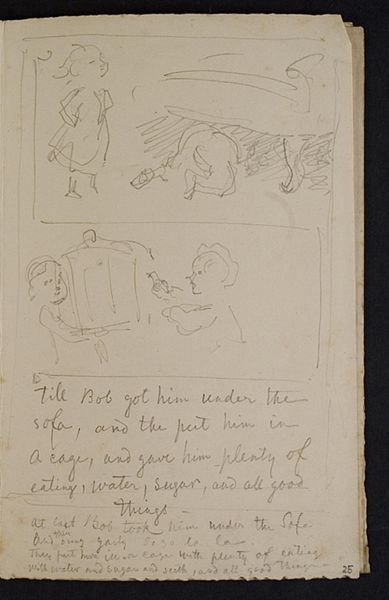 Till Bob got him under the
sofa, and the put him in
a cage, and gave him plenty of
eating, water, sugar, and all good
things —
at last Bob took him under the Sofa
And sung gaily So so la la
They put him in a cage with plenty of eating
with water and sugar and seed, and all good things —
25